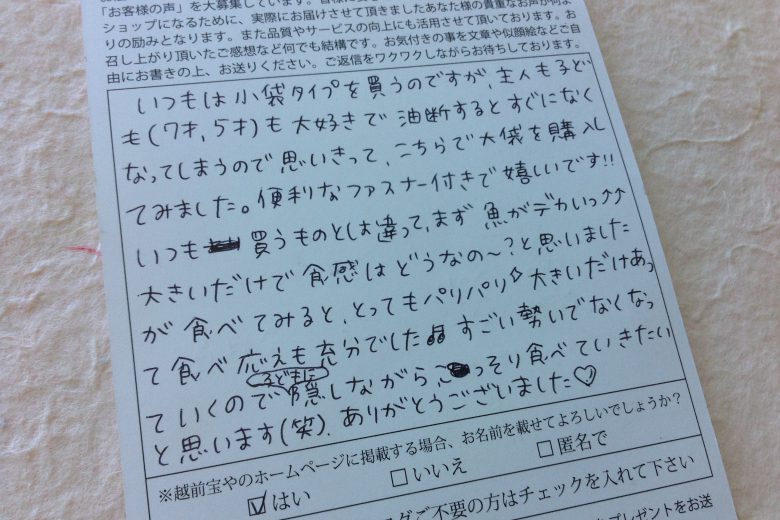 「お客様の声」を大募集しています。皆様に
ショップになるために、実際にお届けさせて頂きましたあなた様の貴重なお声が何よ
りの励みとなります。また品質やサービスの向上にも活用させて頂いております。お
召し上がり頂いたご感想など何でも結構です。お気付きの事を文章や似顔絵などご自
由にお書きの上、お送りください。ご返信をワクワクしながらお待ちしております。
いつもは小袋タイプを買うのですが、主人も子ど
も(7才,5才)も大好きで油断するとすぐになく
なってしまうので思いきって、こちらで大袋を購入し
てみました。便利なファスナー付きで嬉しいです!!
いつも買うものとは違って、まず魚がデカいっ↑↑
大きいだけで食感はどうなの〜?と思いました
が食べてみると、とってもパリパリ♪大きいだけあっ
て食べ応えも充分でした♫すごい勢いでなくなっ
ていくので子どもに隠しながらこっそり食べていきたい
と思います(笑).ありがとうございました♡
※越前宝やのホームページに掲載する場合、お名前を載せてよろしいでしょうか?
☑はい □いいえ □匿名で
ご不要の方はチェックを入れて下さい
プレゼントをお送